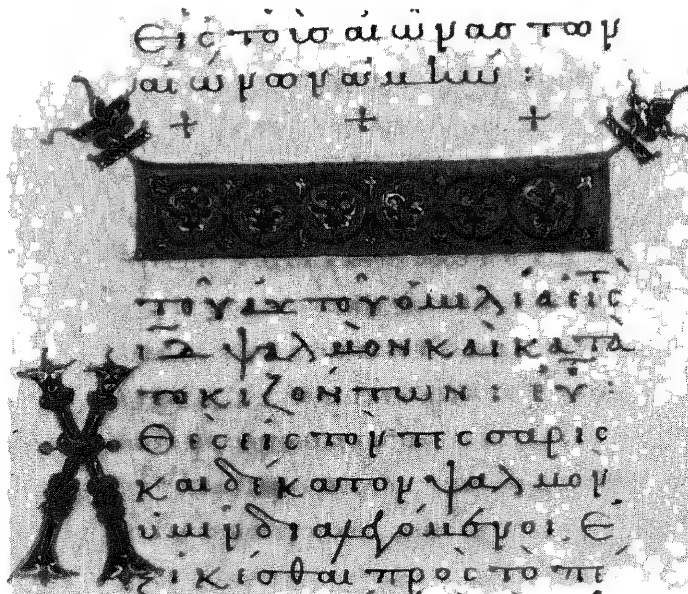 Εἰς τοὺσ αἰῶνασ τῶν
αἰώνων ἀμήν :
+ + +
τοῦ αὐτοῦ ὁμιλία εἰς τὸ
ιδ ψαλμὸν καὶ κατὰ
τοκιζόντων :
Χθὲς εἰς τὸν τεσσαρις
καιδέκατον ψαλμὸν
ὑμῖν διαλεγόμενοι, Ἐ
ξικέσθαι πρὸς τὸ πέ